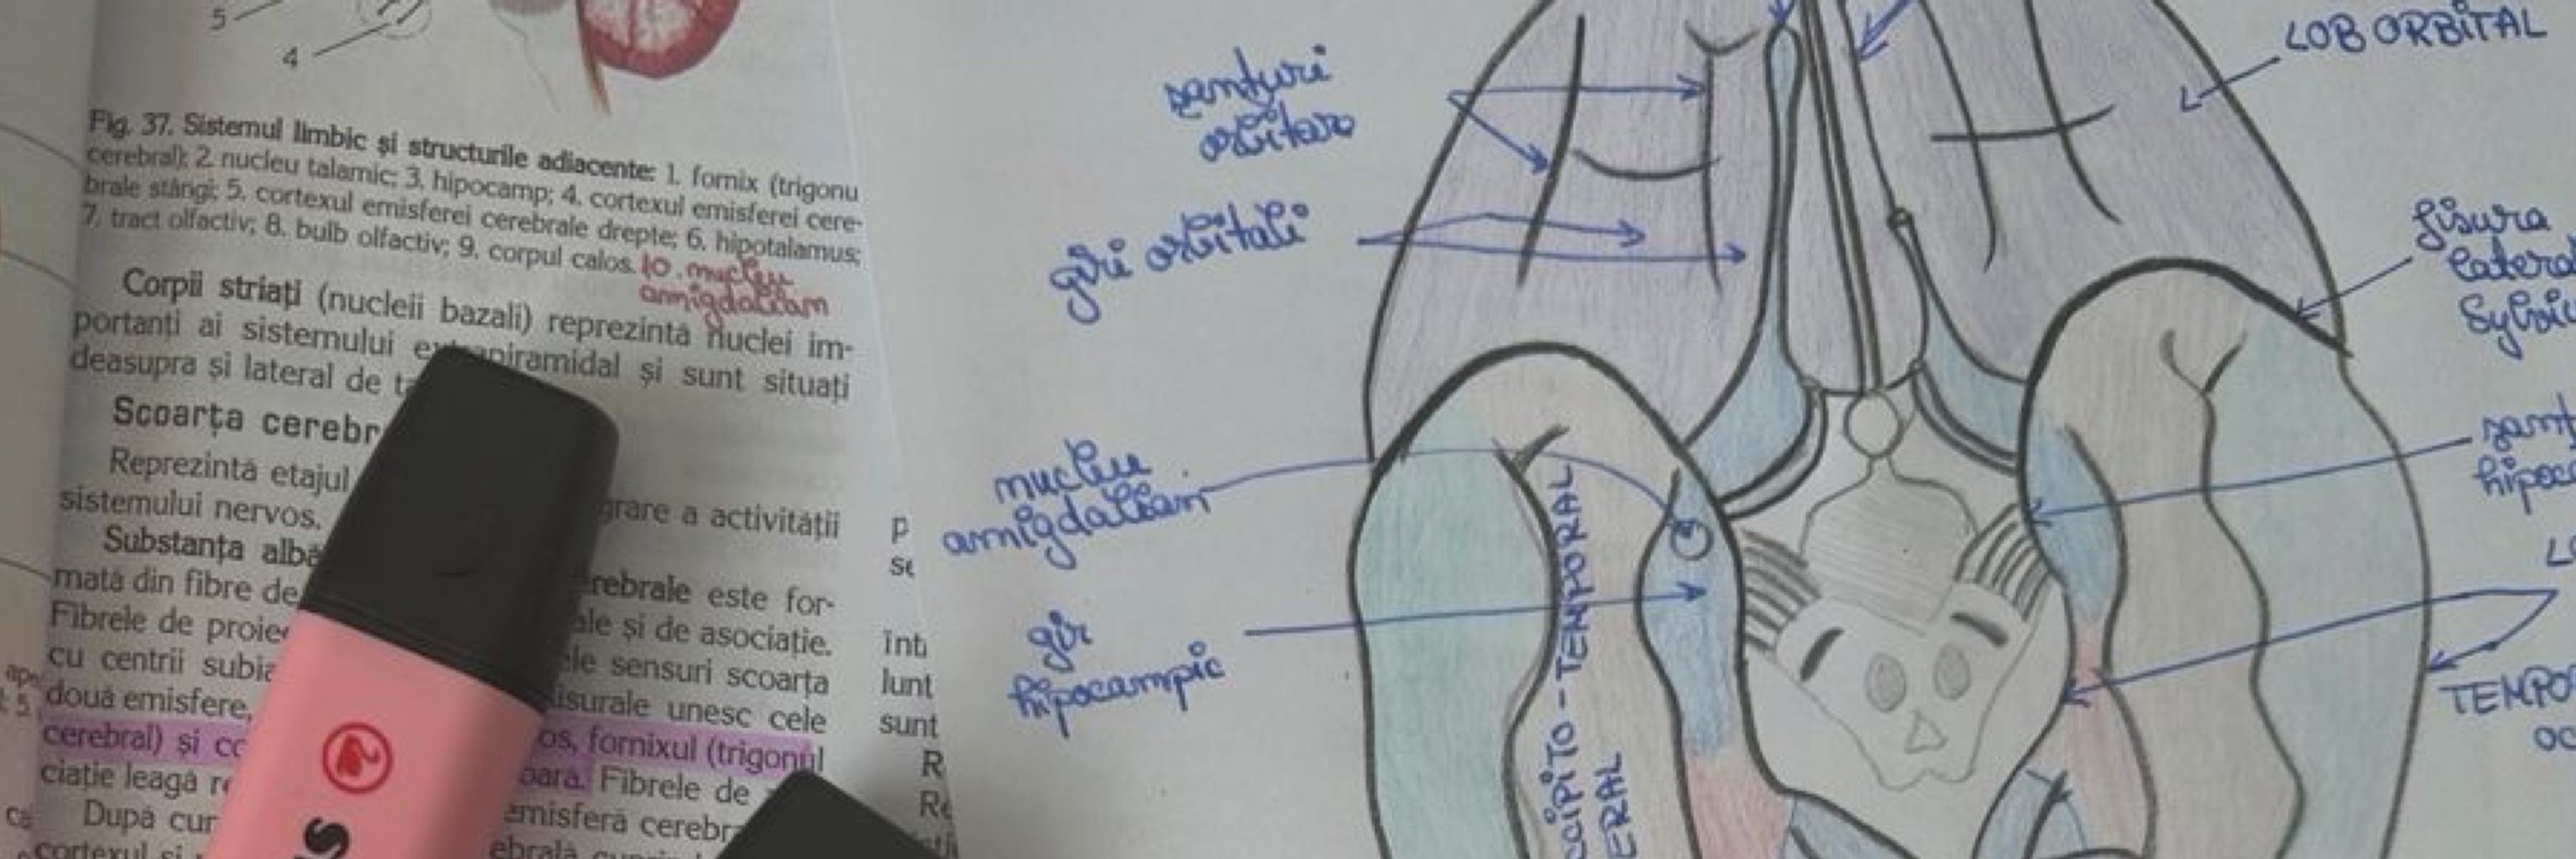 5
4
Fig. 37. Sistemul limbic și structurile adiacente: 1. fornix (trigonu
cerebral); 2. nucleu talamic; 3. hipocamp; 4. cortexul emisferei cere-
brale stângi; 5. cortexul emisferei cerebrale drepte; 6. hipotalamus;
7. tract olfactiv; 8. bulb olfactiv; 9. corpul calos. 10. nucleu
amigdalian
Corpii striați (nucleii bazali) reprezintă nuclei im-
portanți ai sistemului extrapiramidal și sunt situați
deasupra și lateral de
Scoarța cerebr
Reprezintă etajul grare a activității
sistemului nervos.
Substanța albă erebrale este for-
mată din fibre de ale și de asociație.
Fibrele de proie ele sensuri scoarța
cu centrii subia isurale unesc cele
două emisfere, os, fornixul (trigonul
cerebral) și co oară. Fibrele de
ciație leagă emisferă cerebr
După cur
cortexul și
p
se
înt
lunt
sunt
R
Re
șanțuri
orbitare
giri orbitali
nucleu
amigdalian
gir
hipocampic
LOB ORBITAL
fisura
laterală
Sylvi
șanț
hipoc
TEMPO
OC
CCIPITO-TEMPORAL
ERAL